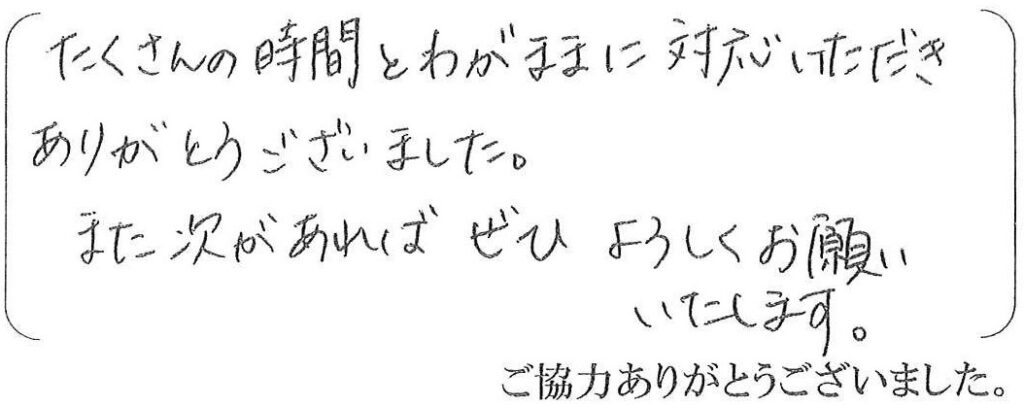 たくさんの時間とわがままに対応いただき
ありがとうございました。
また次があればぜひよろしくお願い
いたします。
ご協力ありがとうございました。